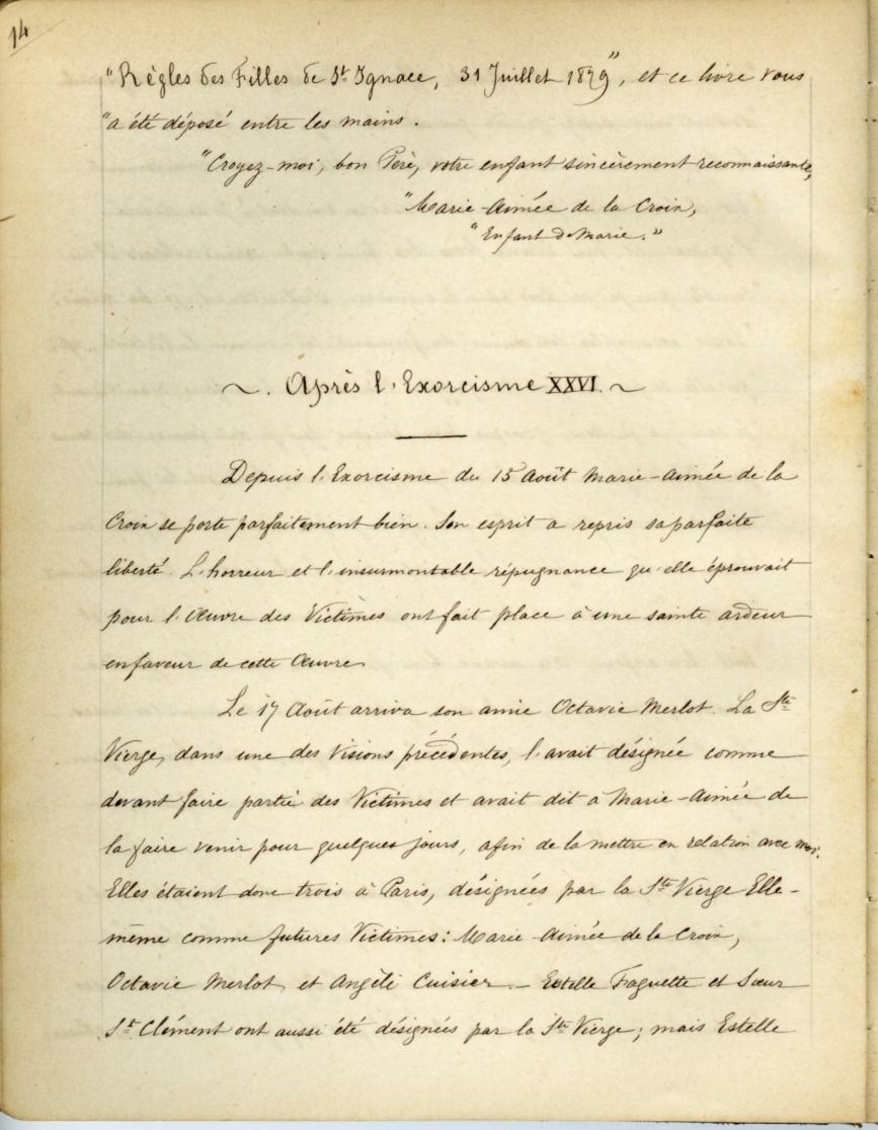 14
"Règles des Filles de St Ignace, 31 Juillet 1879", et ce livre vous
"a été déposé entre les mains.
"Croyez-moi, bon Père, votre enfant sincèrement reconnaissante,
"Marie-Aimée de la Croix,
"Enfant de Marie."
~. Après l'Exorcisme XXVI. ~
Depuis l'Exorcisme du 15 Août Marie-Aimée de la
Croix se porte parfaitement bien. Son esprit a repris sa parfaite
liberté. L'horreur et l'insurmontable répugnance qu'elle éprouvait
pour l'Œuvre des Victimes ont fait place à une sainte ardeur
en faveur de cette Œuvre.
Le 17 Août arriva son amie Octavie Merlot. La Ste
Vierge, dans une des Visions précédentes, l'avait désignée comme
devant faire partie des Victimes et avait dit à Marie-Aimée de
la faire venir pour quelques jours, afin de la mettre en relation avec moi.
Elles étaient donc trois à Paris, désignées par la Ste Vierge Elle-
même comme futures Victimes: Marie-Aimée de la Croix,
Octavie Merlot et Angéle Cuisier. — Estelle Faguette et Sœur
St Clément ont aussi été désignées par la Ste Vierge; mais Estelle